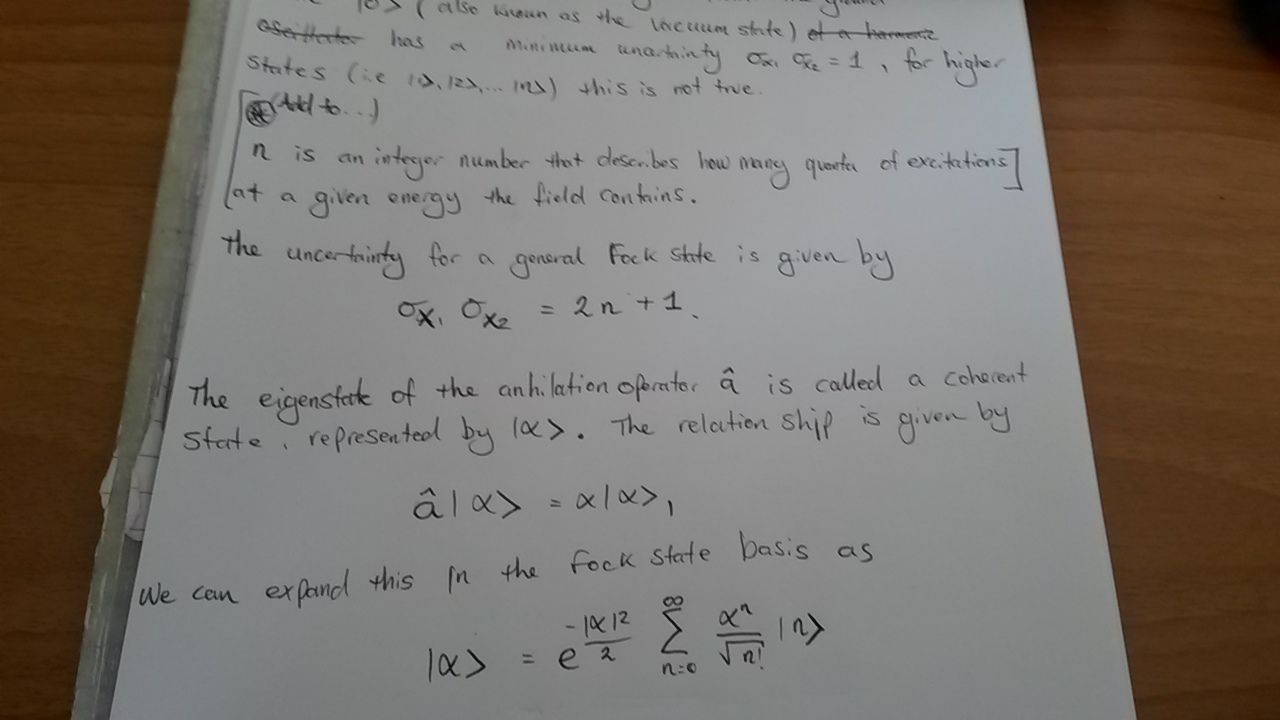 |0> (also known as the vacuum state) of a harmonic
oscillator has a minimum uncertainty σx₁ σx₂ = 1, for higher
states (i.e |1>, |2>,... |n>) this is not true.
(Add to...)
n is an integer number that describes how many quanta of excitations]
at a given energy the field contains.
The uncertainty for a general Fock state is given by
σx₁ σx₂ = 2n + 1.
The eigenstate of the anhilation operator â is called a coherent
state, represented by |α>. The relation ship is given by
â|α> = α|α>,
We can expand this in the fock state basis as
|α> = e^(-|α|²/2) ∑_{n=0}^{∞} αⁿ/√n! |n>